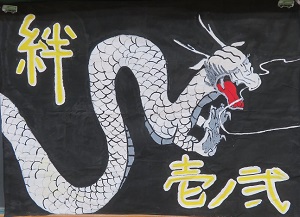 絆
壱ノ弐